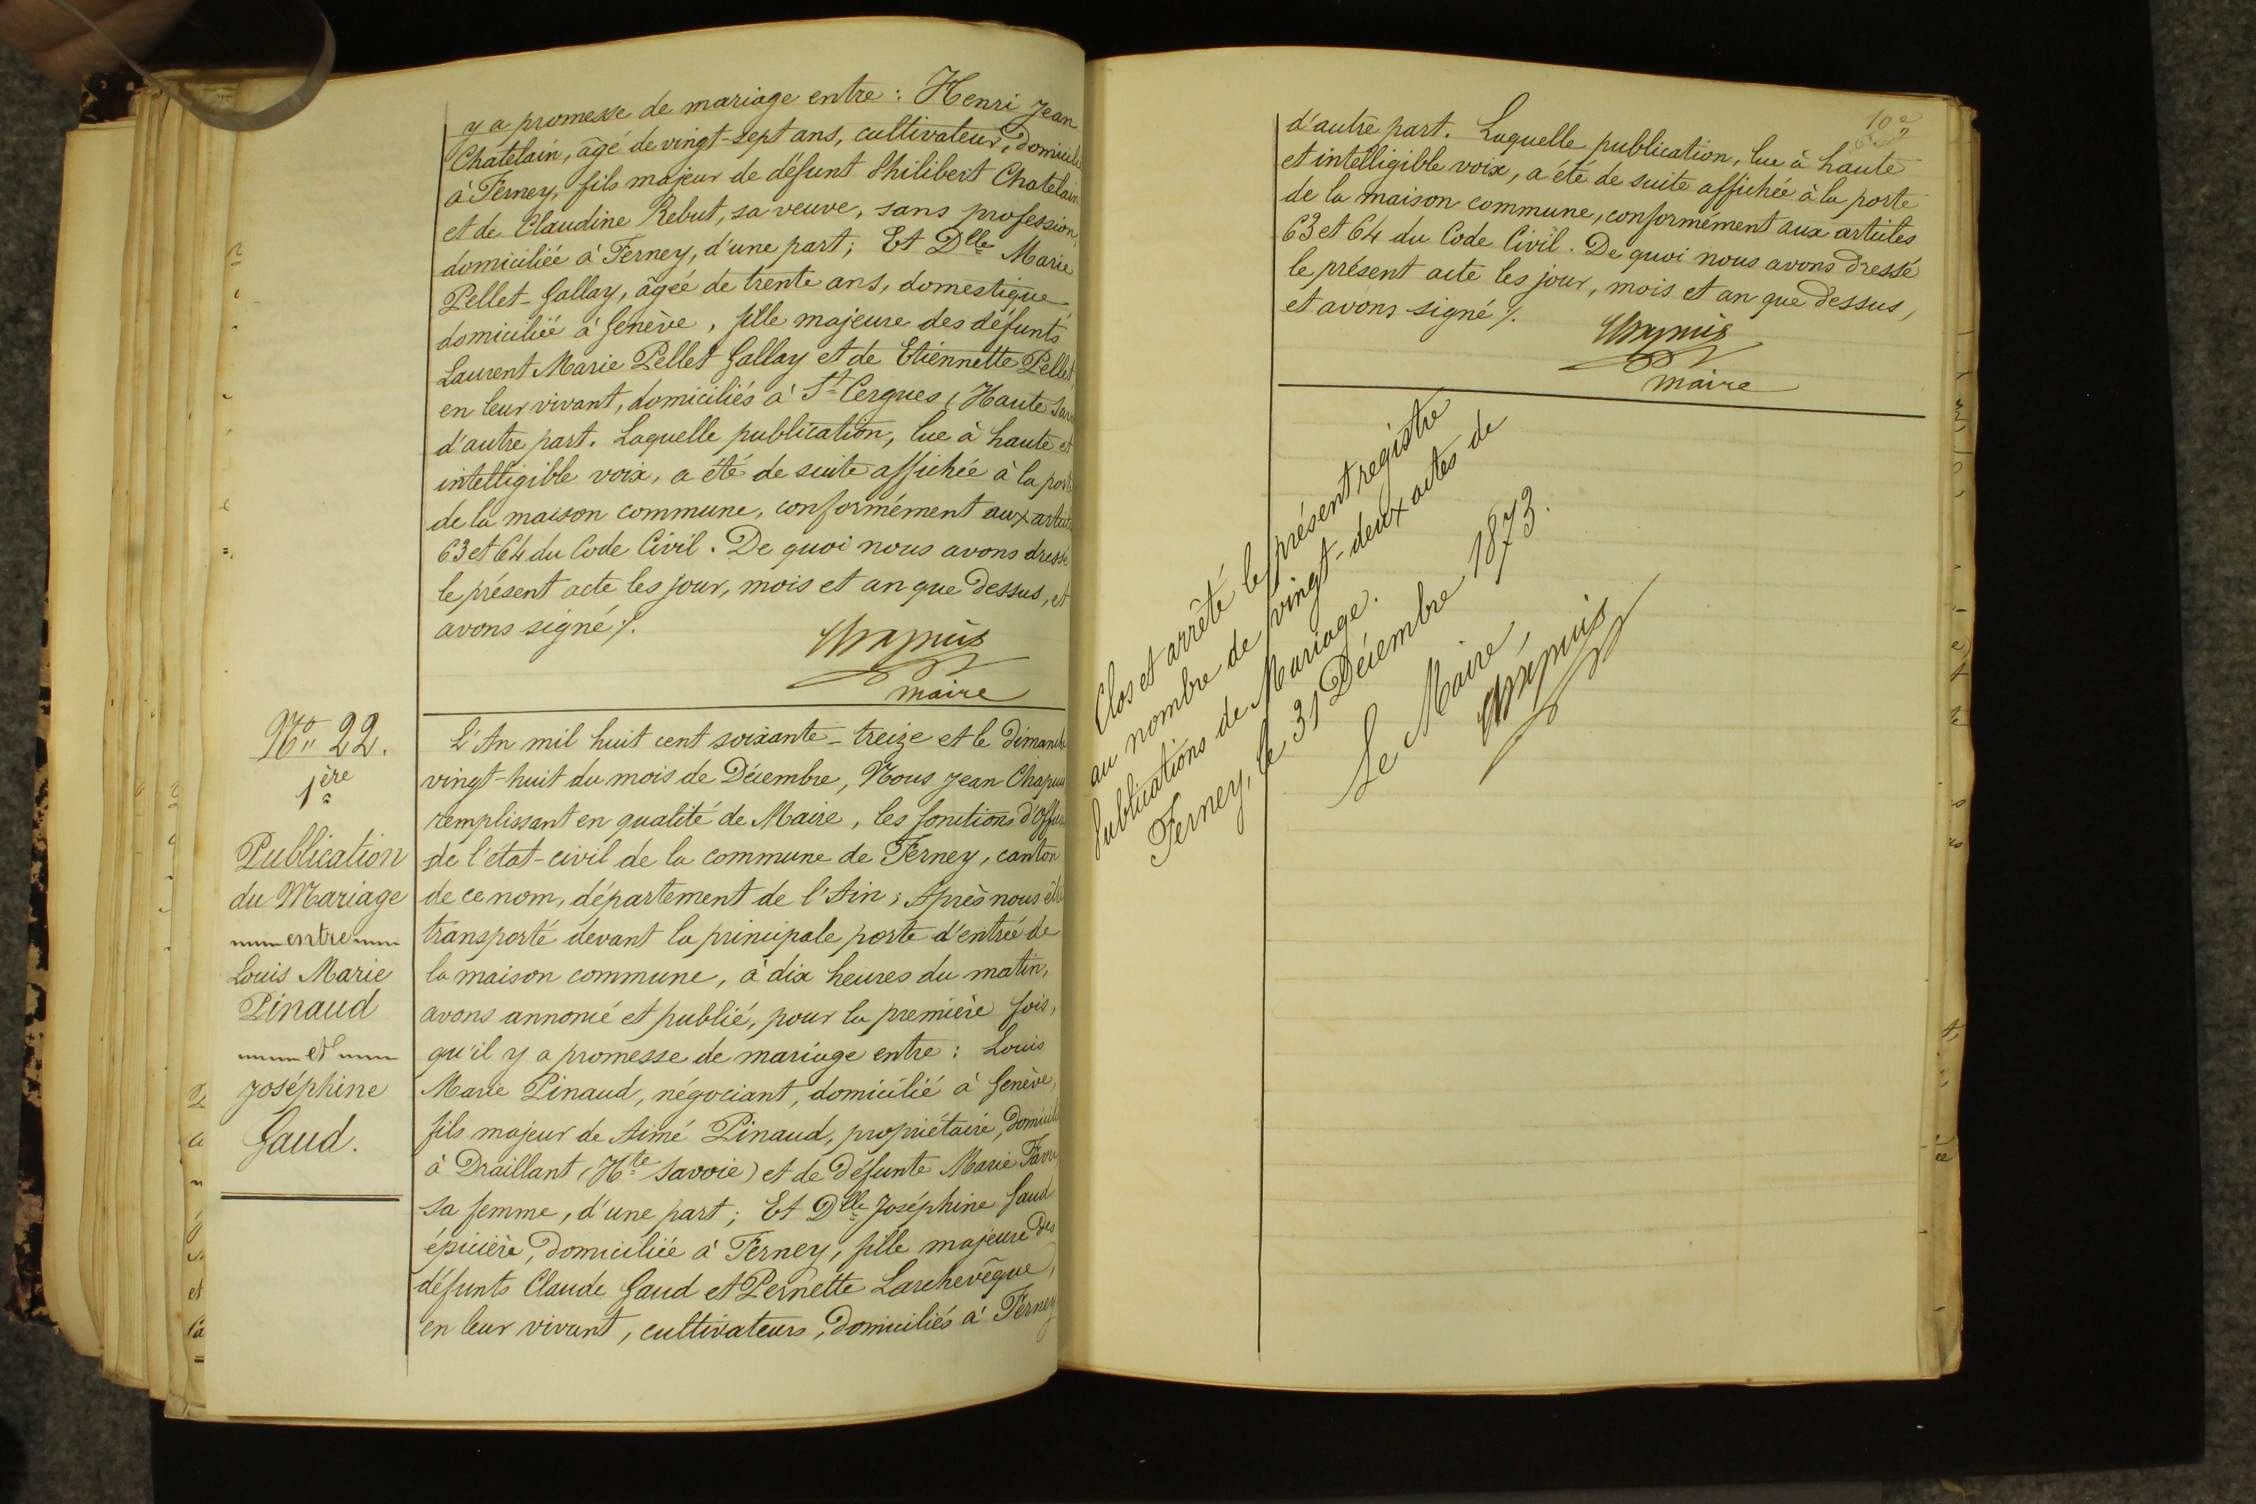 y a promesse de mariage entre : Henri Jean
Chatelain, âgé de vingt-sept ans, cultivateur, domicilié
à Ferney, fils majeur de défunt Philibert Chatelain
et de Claudine Rebut, sa veuve, sans profession,
domiciliée à Ferney, d'une part ; Et Dlle Marie
Pellet-Gallay, âgée de trente ans, domestique
domiciliée à Genève, fille majeure des défunts
Laurent Marie Pellet Gallay et de Etiennette Pellet,
en leur vivant, domiciliés à St Cergues (Haute
d'autre part. Laquelle publication, lue à haute et
intelligible voix, a été de suite affichée à la porte
de la maison commune, conformément aux articles
63 et 64 du Code Civil. De quoi nous avons dressé
le présent acte les jour, mois et an que dessus, et
avons signé /.
Chapuis
maire
No 22.
1ère
Publication
du Mariage
entre
Louis Marie
Pinaud
et
Joséphine
Gaud.
L'An mil huit cent soixante-treize et le dimanche
vingt-huit du mois de Décembre, Nous Jean Chapuis
remplissant en qualité de Maire, les fonctions d'Officier
de l'état-civil de la commune de Ferney, canton
de ce nom, département de l'Ain ; Après nous être
transporté devant la principale porte d'entrée de
la maison commune, à dix heures du matin,
avons annoncé et publié, pour la première fois,
qu'il y a promesse de mariage entre : Louis
Marie Pinaud, négociant, domicilié à Genève,
fils majeur de Aimé Pinaud, propriétaire, domicilié
à Draillant (Hte Savoie) et de défunte Marie Favre
sa femme, d'une part ; Et Dlle Joséphine Gaud
épicière, domiciliée à Ferney, fille majeure des
défunts Claude Gaud et Pernette Larchevêque,
en leur vivant, cultivateurs, domiciliés à Ferney
10e
d'autre part. Laquelle publication, lue à haute
et intelligible voix, a été de suite affichée à la porte
de la maison commune, conformément aux articles
63 et 64 du Code Civil. De quoi nous avons dressé
le présent acte les jour, mois et an que dessus,
et avons signé /.
Chapuis
maire
Clos et arrêté le présent registre
au nombre de vingt-deux actes de
Publications de Mariage.
Ferney, le 31 Décembre 1873.
Le Maire,
Chapuis